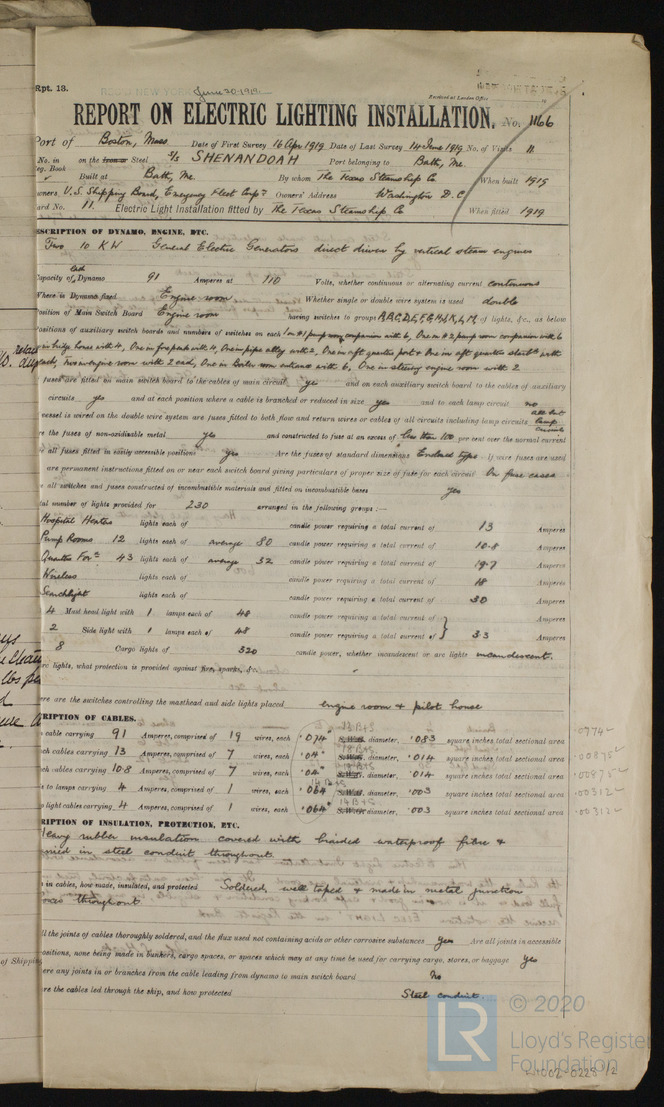 Rpt. 13.
June 30 1919
Received at London Office
REPORT ON ELECTRIC LIGHTING INSTALLATION. No. 1166
Port of Boston, Mass Date of First Survey 16 Apr 1919 Date of Last Survey 14 June 1919 No. of Visits 11
No. in on the Iron or Steel S/S SHENANDOAH Port belonging to Bath, Me.
eg. Book Built at Bath, Me. By whom The Texas Steamship Co When built 1919
wners U.S. Shipping Board, Emergency Fleet Corpn Owners' Address Washington D.C.
ard No. 11. Electric Light Installation fitted by The Texas Steamship Co When fitted 1919
ESCRIPTION OF DYNAMO, ENGINE, ETC.
Two 10 KW General Electric Generators direct driven by vertical steam engines
Capacity of each Dynamo 91 Amperes at 110 Volts, whether continuous or alternating current continuous
Where is Dynamo fixed Engine room Whether single or double wire system is used double
Position of Main Switch Board Engine room having switches to groups A,B,C,D,E,F,G,H,J,K,L,M, of lights, &c., as below
Positions of auxiliary switch boards and numbers of switches on each 1 on #1 pump room companion with 6, One in #2 pump room companion with 6
in bridge house with 4, One in forepeak with 4, One in pipe alley with 2, One in aft quarters port & One in aft quarters starbd with
each, Two in engine room with 2 each, One in Boiler room entrance with 6, One in steering engine room with 2
fuses are fitted on main switch board to the cables of main circuit yes and on each auxiliary switch board to the cables of auxiliary
circuits yes and at each position where a cable is branched or reduced in size yes and to each lamp circuit no
vessel is wired on the double wire system are fuses fitted to both flow and return wires or cables of all circuits including lamp circuits all but lamp circuits
re the fuses of non-oxidizable metal yes and constructed to fuse at an excess of less than 100 per cent over the normal current
re all fuses fitted in easily accessible positions yes Are the fuses of standard dimensions Enclosed type If wire fuses are used
are permanent instructions fitted on or near each switch board giving particulars of proper size of fuse for each circuit On fuse cases
e all switches and fuses constructed of incombustible materials and fitted on incombustible bases yes
tal number of lights provided for 230 arranged in the following groups :—
Hospital Heaters lights each of candle power requiring a total current of 13 Amperes
Pump Rooms 12 lights each of average 80 candle power requiring a total current of 10.8 Amperes
Quarters For'd 43 lights each of average 32 candle power requiring a total current of 19.7 Amperes
Wireless lights each of candle power requiring a total current of 18 Amperes
Searchlight lights each of candle power requiring a total current of 30 Amperes
4 Mast head light with 1 lamps each of 48 candle power requiring a total current of
2 Side light with 1 lamps each of 48 candle power requiring a total current of } 33 Amperes
8 Cargo lights of 320 candle power, whether incandescent or arc lights incandescent.
rc lights, what protection is provided against fire, sparks, &c. "
ere are the switches controlling the masthead and side lights placed engine room & pilot house
RIPTION OF CABLES.
n cable carrying 91 Amperes, comprised of 19 wires, each .074" S.W.G. diameter, .083 square inches total sectional area .0974
ch cables carrying 13 Amperes, comprised of 7 wires, each .04" S.W.G. diameter, .014 square inches total sectional area .00875
ch cables carrying 10.8 Amperes, comprised of 7 wires, each .04" S.W.G. diameter, .014 square inches total sectional area .00875
s to lamps carrying 4 Amperes, comprised of 1 wires, each .064 S.W.G. diameter, .003 square inches total sectional area .00312
o light cables carrying 4 Amperes, comprised of 1 wires, each .064" S.W.G. diameter, .003 square inches total sectional area .00312
RIPTION OF INSULATION, PROTECTION, ETC.
Heavy rubber insulation covered with braided waterproof fibre &
arried in steel conduit throughout.
s in cables, how made, insulated, and protected Soldered, well taped & made in metal junction
oxes throughout
ll the joints of cables thoroughly soldered, and the flux used not containing acids or other corrosive substances yes Are all joints in accessible
ositions, none being made in bunkers, cargo spaces, or spaces which may at any time be used for carrying cargo, stores, or baggage yes
ere any joints in or branches from the cable leading from dynamo to main switch board No
re the cables led through the ship, and how protected Steel conduit.
of Shipping
© 2020
LR
Lloyd's Register
Foundation